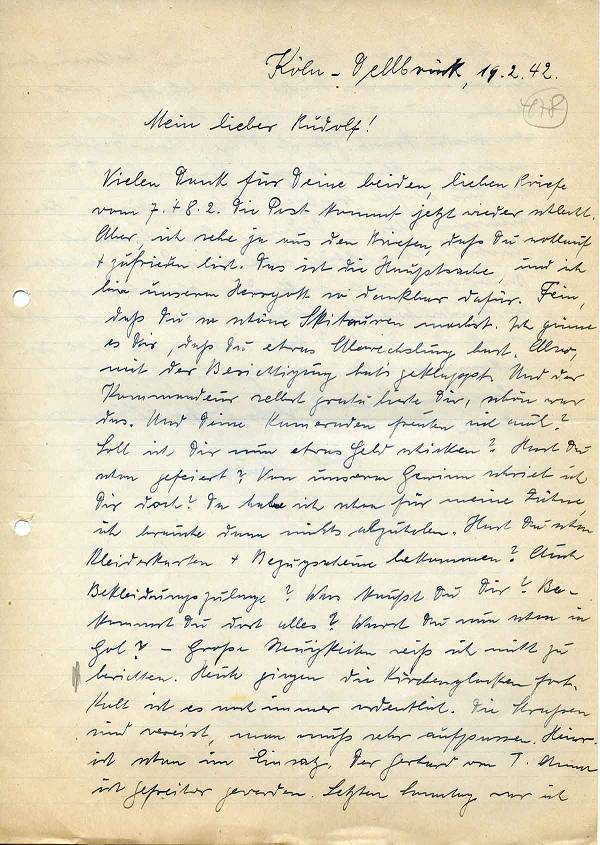 Köln-Dellbrück, 19.2.42.
678
Mein lieber Rudolf!
Vielen Dank für Deine beiden, lieben Briefe
vom 7. + 8.2. Die Post kommt jetzt wieder schlecht.
Aber, ich sehe ja aus den Briefen, daß Du wohlauf
+ zufrieden bist. Das ist die Hauptsache, und ich
bin unserem Herrgott so dankbar dafür. Fein,
daß Du so schöne Skitouren machst. Ich gönne
es Dir, daß Du etwas Abwechslung hast. Also,
mit der Besichtigung hats geklappt. Und der
Kommandeur selbst gratulierte Dir, schön war
das. Und Deine Kameraden freuten sich auch?
Soll ich Dir nun etwas Geld schicken? Hast Du
schon gefeiert? Von unserem Gewinn schrieb ich
Dir doch? Da habe ich schon für meine Zähne,
ich brauche dann nichts abzuholen. Hast Du schon
Kleiderkarten + Bezugscheine bekommen? Auch
Bekleidungszulage? Was kaufst Du Dir? Be-
kommst Du dort alles? Warst Du nun schon in
Gol? – Große Neuigkeiten weiß ich nicht zu
berichten. Heute gingen die Kirchenglocken fort.
Kalt ist es noch immer ordentlich. Die Strassen
sind vereist, man muß sehr aufpassen. Heinr.
ist schon im Einsatz. Der Gerhard von T. Anna
ist Gefreiter geworden. Letzten Sonntag war ich